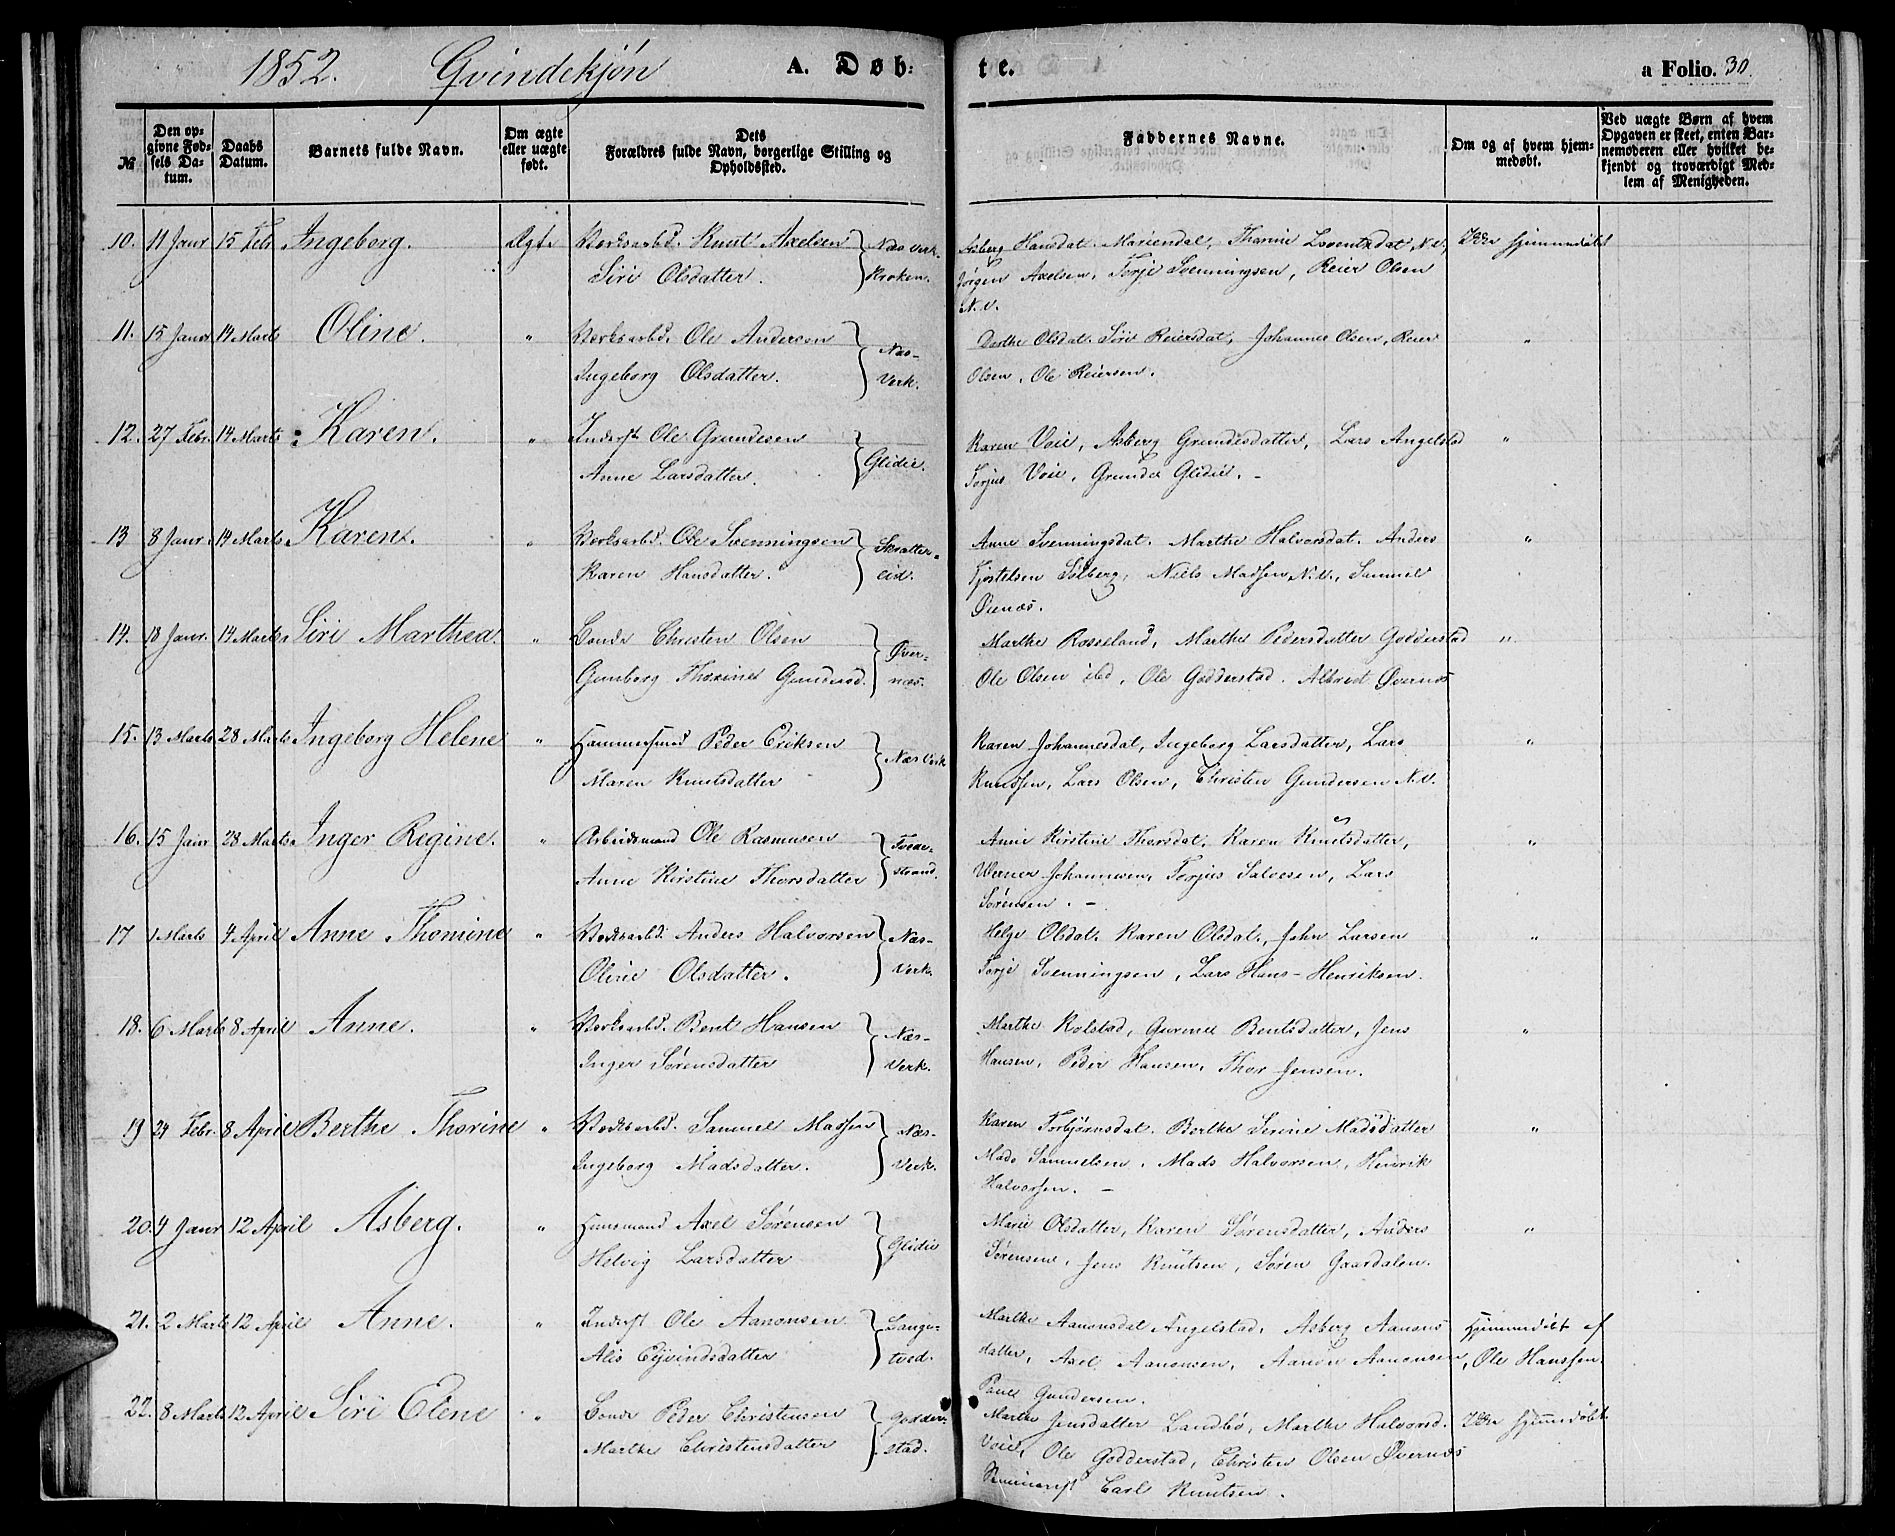 1852. Qvindekjön A. Døb-
te. a Folio. 30.
№
Den op-
givne Fød-
sels Da-
tum.
Daabs
Datum.
Barnets fulde Navn.
Om ægte
eller uægte
født.
Dets
Forældres fulde Navn, borgerlige Stilling og
Opholdssted.
Faddernes Navne.
Om og af hvem hjem-
medøbt.
Ved uægte Børn af hvem
Opgaven er skeet, enten Bar-
nemoderen eller hvilket be-
kjendt og troværdigt Med-
lem af Menigheden.
10. 11 Janr 15 Febr Ingeborg. Ægte Værksarbd. Knut Axelsen Næs Verk.
Siri Olsdatter. Kroken.
Asberg Hansdat. Mariendal, Thorine Lorentzdat, N.V., Ikke hjemmedøbt
Jørgen Axelsen, Torje Svenningsen, Reier Olsen
N.V.
11. 15 Janr 14 Marts Oline. " Værksarbd. Ole Andersen Næs-
Ingeborg Olsdatter. Verk.
Dorthe Olsdat. Siri Reiersdat, Johannes Olsen, Reier "
Olsen, Ole Reiersen.
12. 27 Febr. 14 Marts Karen. " Inderst Ole Grundesen
Anne Larsdatter. Glidie.
Karen Voie, Asberg Grundesdatter, Lars Angelstad "
Torjus Voie, Grunde Glidie. -
13 8 Janr. 14 Marts Karen. " Værksarbd. Ole Svenningsen Skratter-
Karen Hansdatter. eid.
Anne Svenningsdat. Marthe Halvorsdat. Anders "
Kjostelsen Solberg, Niels Madsen N.V., Samuel
Øienæs.
14. 18 Janr. 14 Marts Siri Marthea. " Bonde Christen Olsen Øver-
Gunborg Thorine Gundersd. næs.
Marthe Rosseland, Marthe Pedersdatter Godderstad "
Ole Olsen ibd, Ole Godderstad. Albret Øvernæs
15. 13 Marts 28 Marts Ingeborg Helene " Hammersmed Peder Eriksen
Maren Knutsdatter Næs Verk
Karen Johannesdat, Ingeborg Larsdatter, Lars "
Knudsen, Lars Olsen, Christen Gundersen N.V.
16. 15 Janr 28 Marts Inger Regine. " Arbeidsmand Ole Rasmusen Tvede-
Anne Kirstine Thorsdatter strand.
Anne Kirstine Thorsdat, Karen Knutsdatter, "
Werner Johannesen, Torjus Salvesen, Lars
Sørensen. -
17 1 Marts 4 April Anne Thomine " Værksarbd. Anders Halvorsen Næs-
Oline Olsdatter. Verk.
Helge Olsdat. Karen Olsdat., John Larsen "
Torje Svenningsen, Lars Hans- Henriksen.
18. 6 Marts 8 April Anne. " Værksarbd. Bent Hansen Næs-
Inger Sørensdatter Verk.
Marthe Rolstad, Gurine Bentsdatter, Jens "
Hansen, Peder Hansen, Thor Jensen.
19 24 Febr. 8 April Berthe Thorine " Værksarbd. Samuel Madsen Næs-
Ingeborg Madsdatter. Verk.
Karen Torbjørnsdat. Berthe Serine Madsdatter "
Mads Samuelsen. Mads Halvorsen, Henrik
Halvorsen. -
20. 4 Janr 12 April Asberg. " Huusmand Axel Sørensen
Helvig Larsdatter Glidie
Marie Olsdatter, Karen Sørensdatter, Anders "
Sørensen, Jens Knutsen, Søren Gaardalen.
21. 2 Marts 12 April Anne. " Inderst Ole Aanonsen Lange-
Alis Eyvindsdatter tved.
Marthe Aanonsdat Angelstad, Asberg Aanons Hjemmedøbt af
datter, Axel Aanonsen, Aanon Aanonsen, Ole Hanssen.
Paul Gundersen.
22. 8 Marts 12 April Siri Elene " Bonde Peder Christensen Godder-
Marthe Christensdatter stad.
Marthe Jensdatter Landbø, Marthe Halvorsd. Ikke hjemmedøbt
Voie, Ole Godderstad, Christen Olsen Øvernæs
Seminarist Carl Knutsen.